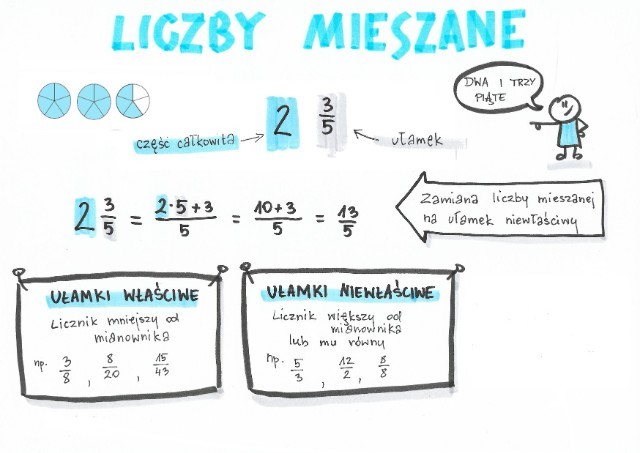 LICZBY MIESZANE
DWA I TRZY
PIĄTE
2 3/5
część całkowita
ułamek
2 3/5 = 2·5+3/5 = 10+3/5 = 13/5
Zamiana liczby mieszanej
na ułamek niewłaściwy
UŁAMKI WŁAŚCIWE
Licznik mniejszy od
mianownika
np. 3/8, 8/20, 15/43
UŁAMKI NIEWŁAŚCIWE
Licznik większy od
mianownika
lub mu równy
np. 5/3, 12/2, 8/8